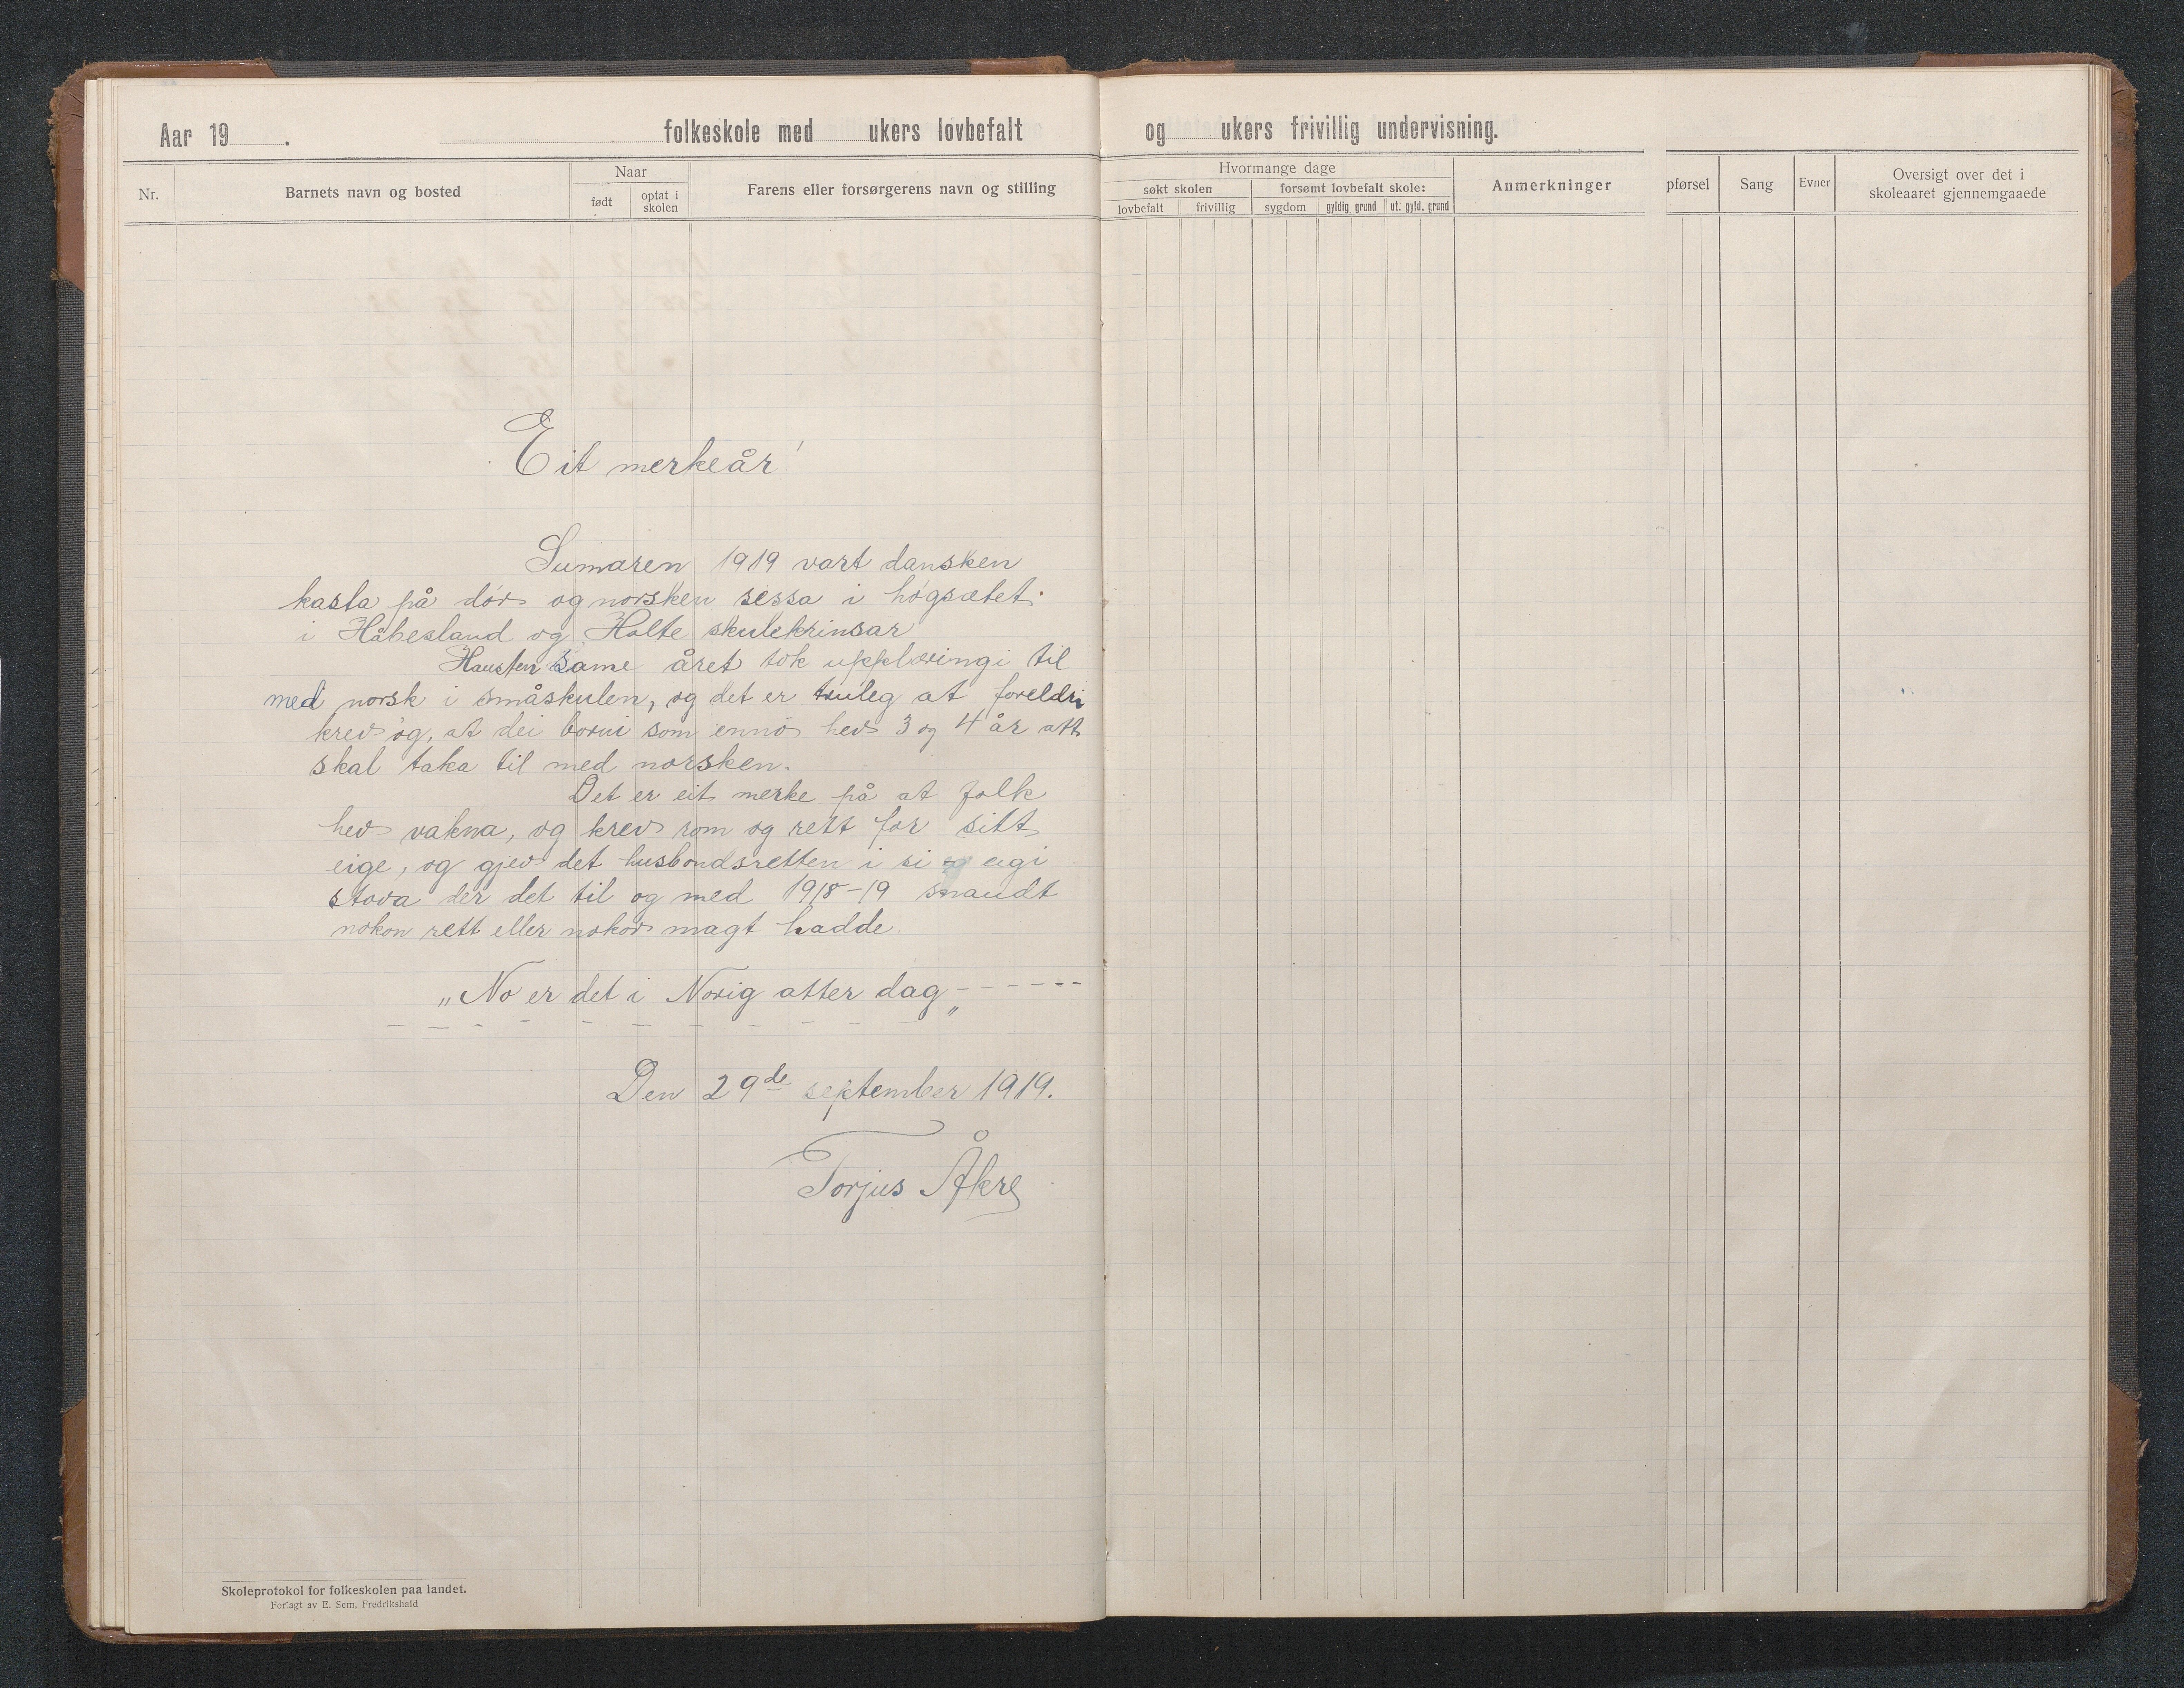 Aar 19 . folkeskole med ukers lovbefalt og ukers frivillig undervisning.
Nr.
Barnets navn og bosted
Naar
født
optat i
skolen
Farens eller forsørgerens navn og stilling
Hvormange dage
søkt skolen
forsømt lovbefalt skole:
lovbefalt
frivillig
sygdom
gyldig grund
ut. gyld. grund
Anmerkninger
pførsel
Sang
Evner
Oversigt over det i
skoleaaret gjennemgaaede
Eit merkeår!
Sumaren 1919 vart dansken
kasta på dør og norsken sessa i høgsætet
i Håbesland og Holte skulekrinsar
Hausten same året tok upplæringi til
med norsk i småskulen, og det er truleg at foreldri
krev òg, at dei borni som ennò hev 3 og 4 år att
skal taka til med norsken.
Det er eit merke på at folk
hev vakna, og krev rom og rett for sitt
eige, og gjev det husbondsretten i si eigi
stova der det til og med 1918-19 snaudt
nokon rett eller nokor magt hadde
„No er det i Norig atter dag„ ------
Den 29de september 1919.
Torjus Åkre
Skoleprotokol for folkeskolen paa landet.
Forlagt av E. Sem, Fredrikshald